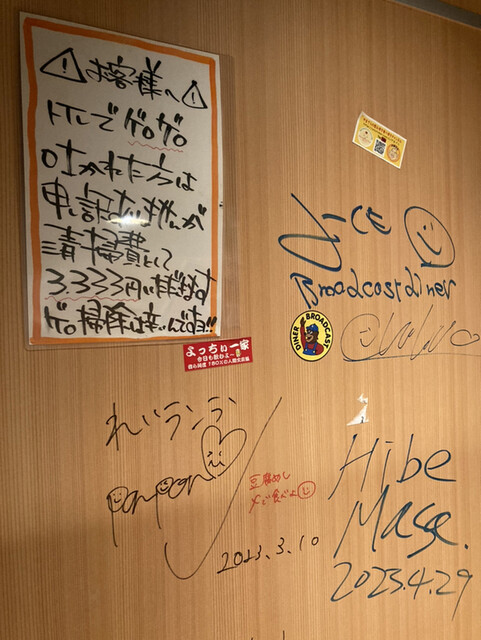 ⚠お客様へ⚠
トイレでゲロゲロ
吐かれた方は
申し訳ないですが
清掃費として
3.333円いただきます
ゲロ掃除は辛いんです!!
よっちぃ一家
今日も飲むよ～
ICE
Broadcast diner
DINER BROADCAST
れいランラン
ponpon
豆腐めし
〆で食べよ
2023.3.10
Hibe
Mase.
2023.4.29